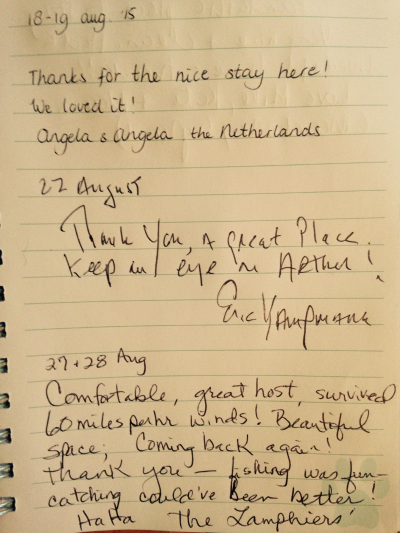 18-19 aug '15
Thanks for the nice stay here!
We loved it!
Angela & Angela the Netherlands
22 August
Thank You, A great Place.
Keep an eye on Arthur!
Eric
27+28 Aug
Comfortable, great host, survived
60 miles per hr winds! Beautiful
space, Coming back again!
Thank you — fishing was fun-
catching could've been better!
HaHa The Lamphiers'